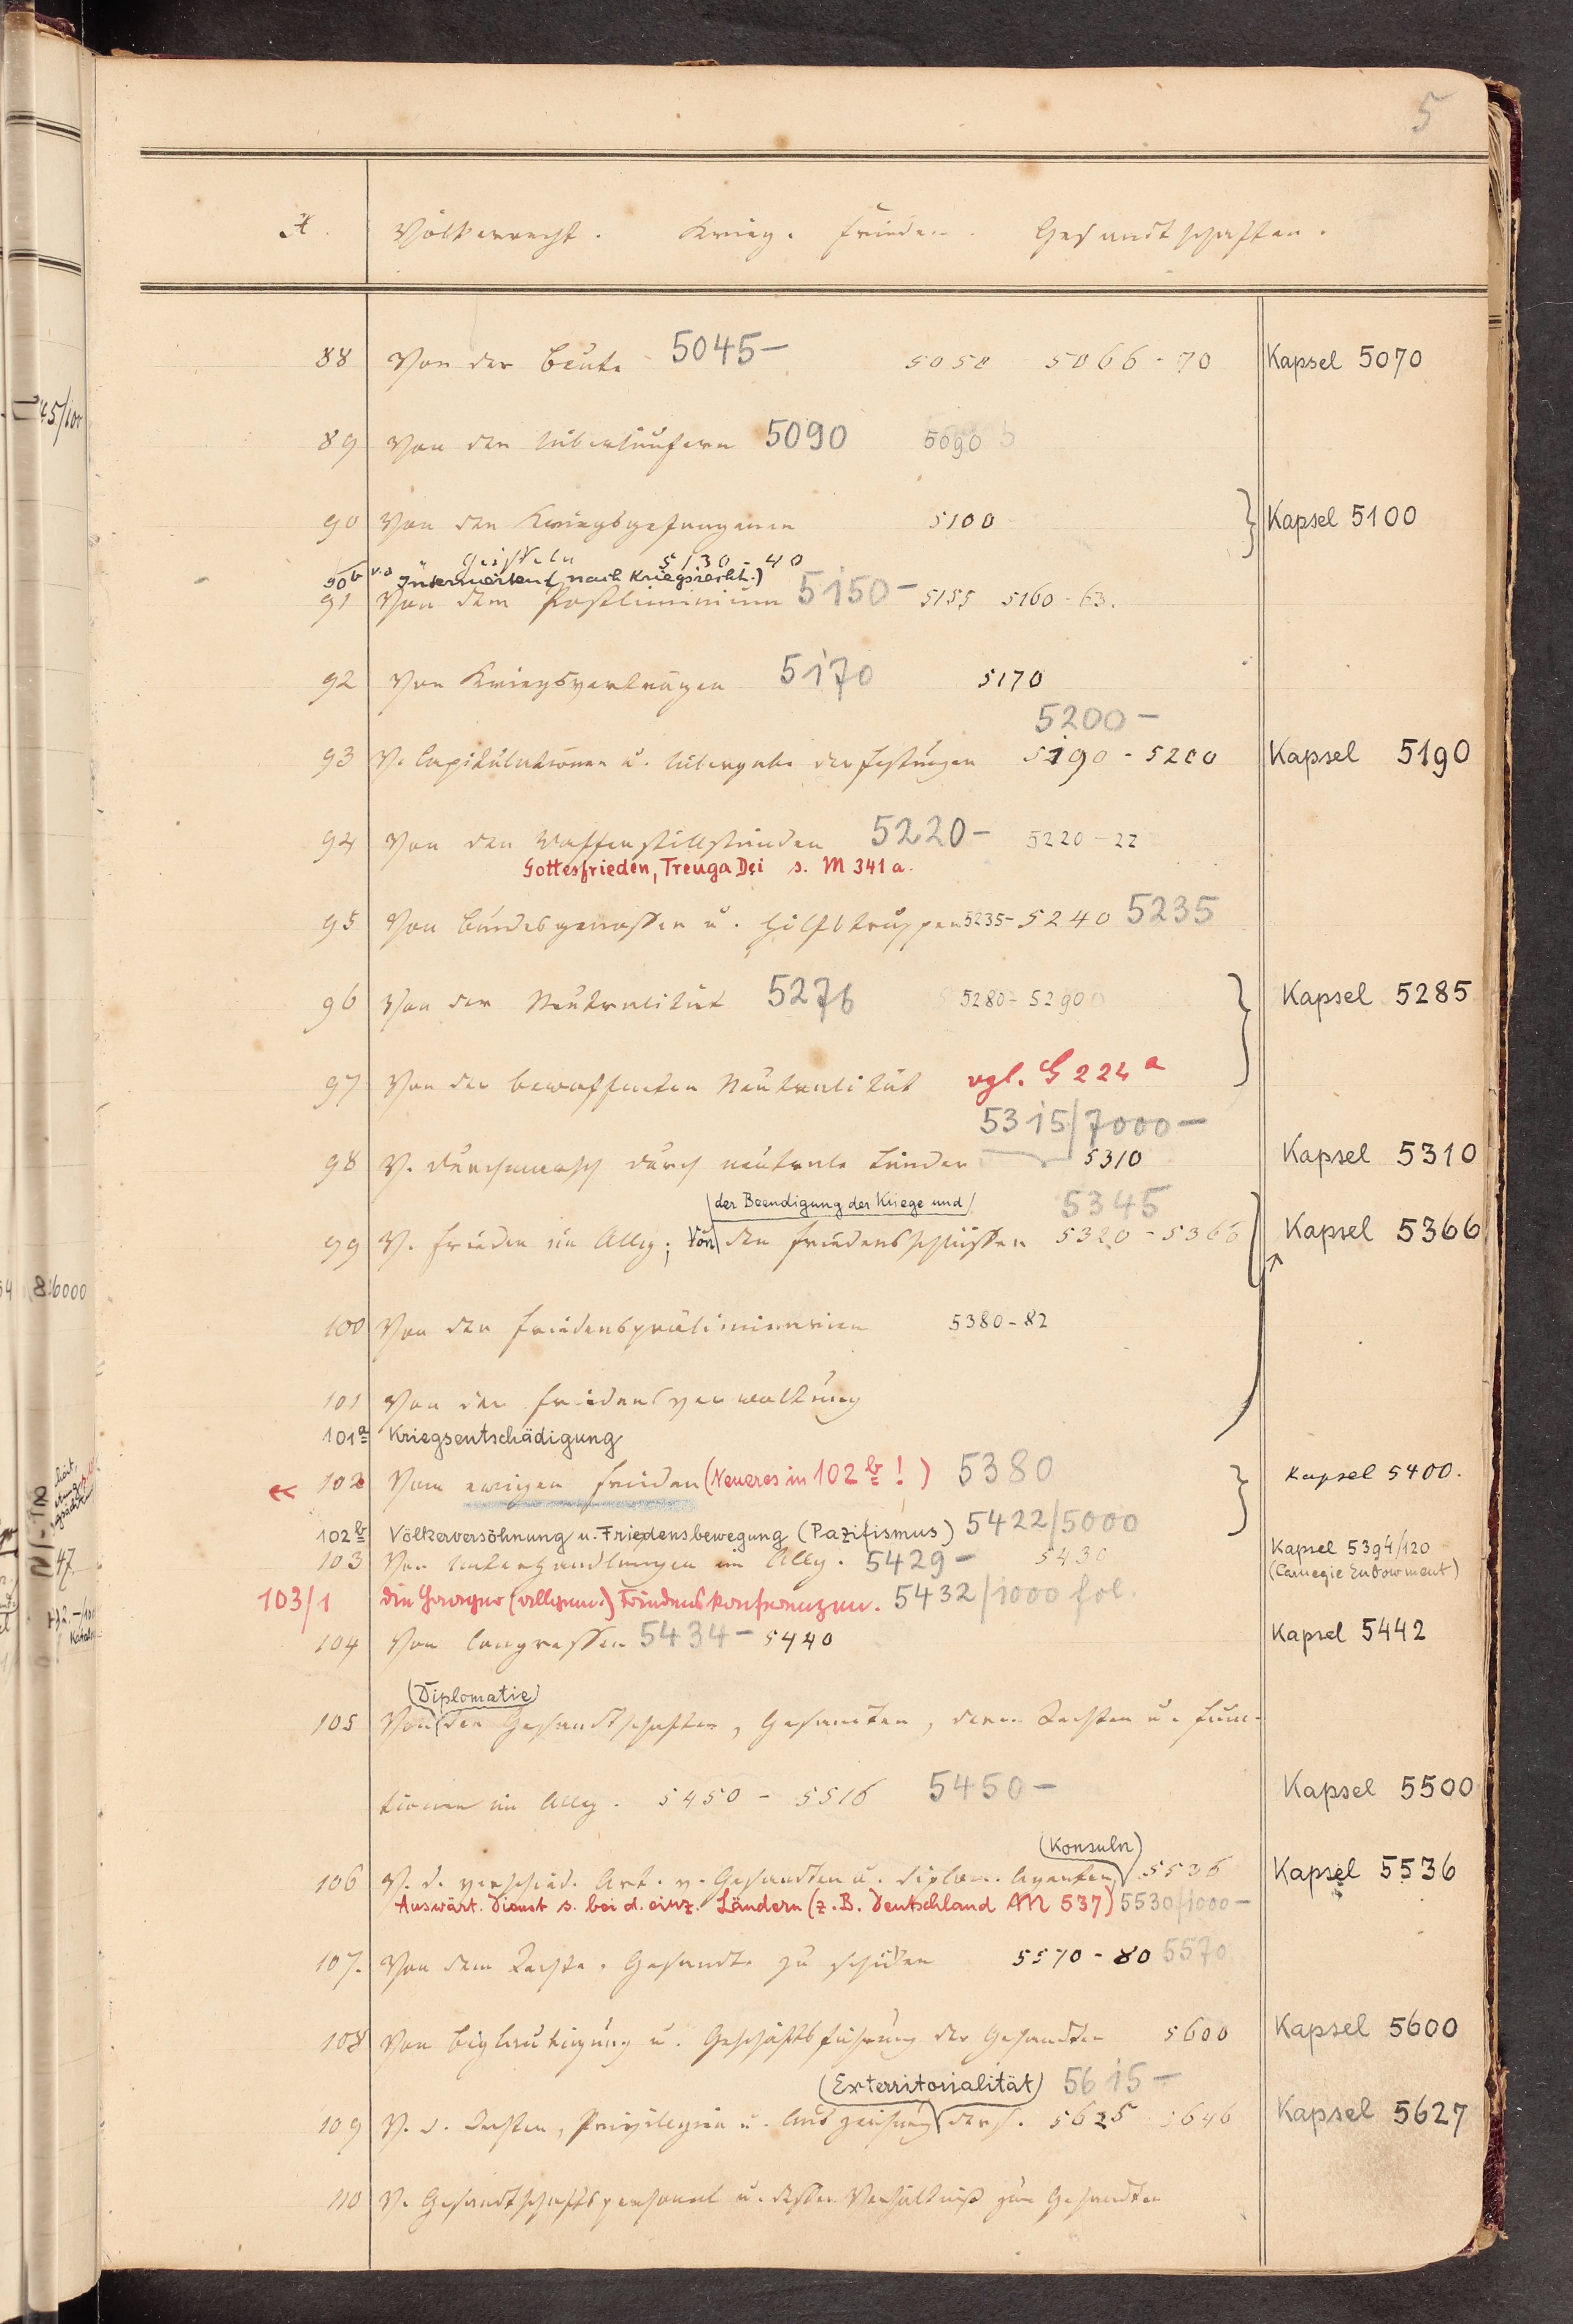 5
A. Völkerrecht. Krieg. Frieden. Gesandtschaften.
88 Von der Beute 5045– 5050 5066-70 Kapsel 5070
89 Von den Überläufern 5090 5090
90 Von den Kriegsgefangenen 5100 } Kapsel 5100
Geiseln 5130-40
90b v.a Internierten (nach Kriegsrecht.)
91 Von dem Postliminium 5150– 5155 5160-63.
92 Von Kriegsverträgen 5170 5170
5200–
93 V. Capitulationen u. Übergabe der Festungen 5190-5200 Kapsel 5190
94 Von den Waffenstillständen 5220– 5220-22
Gottesfrieden, Treuga Dei s. M 341a.
95 Von Bundesgenossen u. Hilfstruppen 5235-5240 5235
96 Von der Neutralität 5276 5280-5290 } Kapsel 5285
97 Von der bewaffneten Neutralität vgl. G 224a
5315/7000–
98 V. Durchmarsch durch neutrale Länder 5310 Kapsel 5310
(der Beendigung der Kriege und) 5345
99 V. Frieden im Allg.; Von den Friedensschlüssen 5320-5366 Kapsel 5366
100 Von den Friedenspräliminarien 5380-82
101 Von der Friedensverwaltung
101a Kriegsentschädigung
102 Vom ewigen Frieden (Neueres in 102b!) 5380 } Kapsel 5400.
102b Völkerversöhnung u. Friedensbewegung (Pazifismus) 5422/5000
103 Von Unterhandlungen im Allg. 5429– 5430 Kapsel 5394/120
(Carnegie Endowment)
103/1 Die Haager (allgem.) Friedenskonferenzen. 5432/1000 fol.
104 Von Congressen 5434– 5440 Kapsel 5442
(Diplomatie)
105 Von den Gesandtschaften, Gesandten, deren Rechten u. Func-
tionen im Allg. 5450-5516 5450– Kapsel 5500
(Konsuln)
106 V. d. verschied. Art. v. Gesandten u. diplom. Agenten 5536 Kapsel 5536
Auswärt. Dienst s. bei d. einz. Ländern (z.B. Deutschland M 537) 5530/1000–
107. Von dem Rechte, Gesandte zu schicken 5570-80 5570
108 Von Beglaubigung u. Geschäftsführung der Gesandten 5600 Kapsel 5600
(Exterritorialität) 5615–
109 V. d. Rechten, Privilegien u. Auszeichnung ders. 5625 5646 Kapsel 5627
110 V. Gesandtschaftspersonal u. dessen Verhältniß zum Gesandten